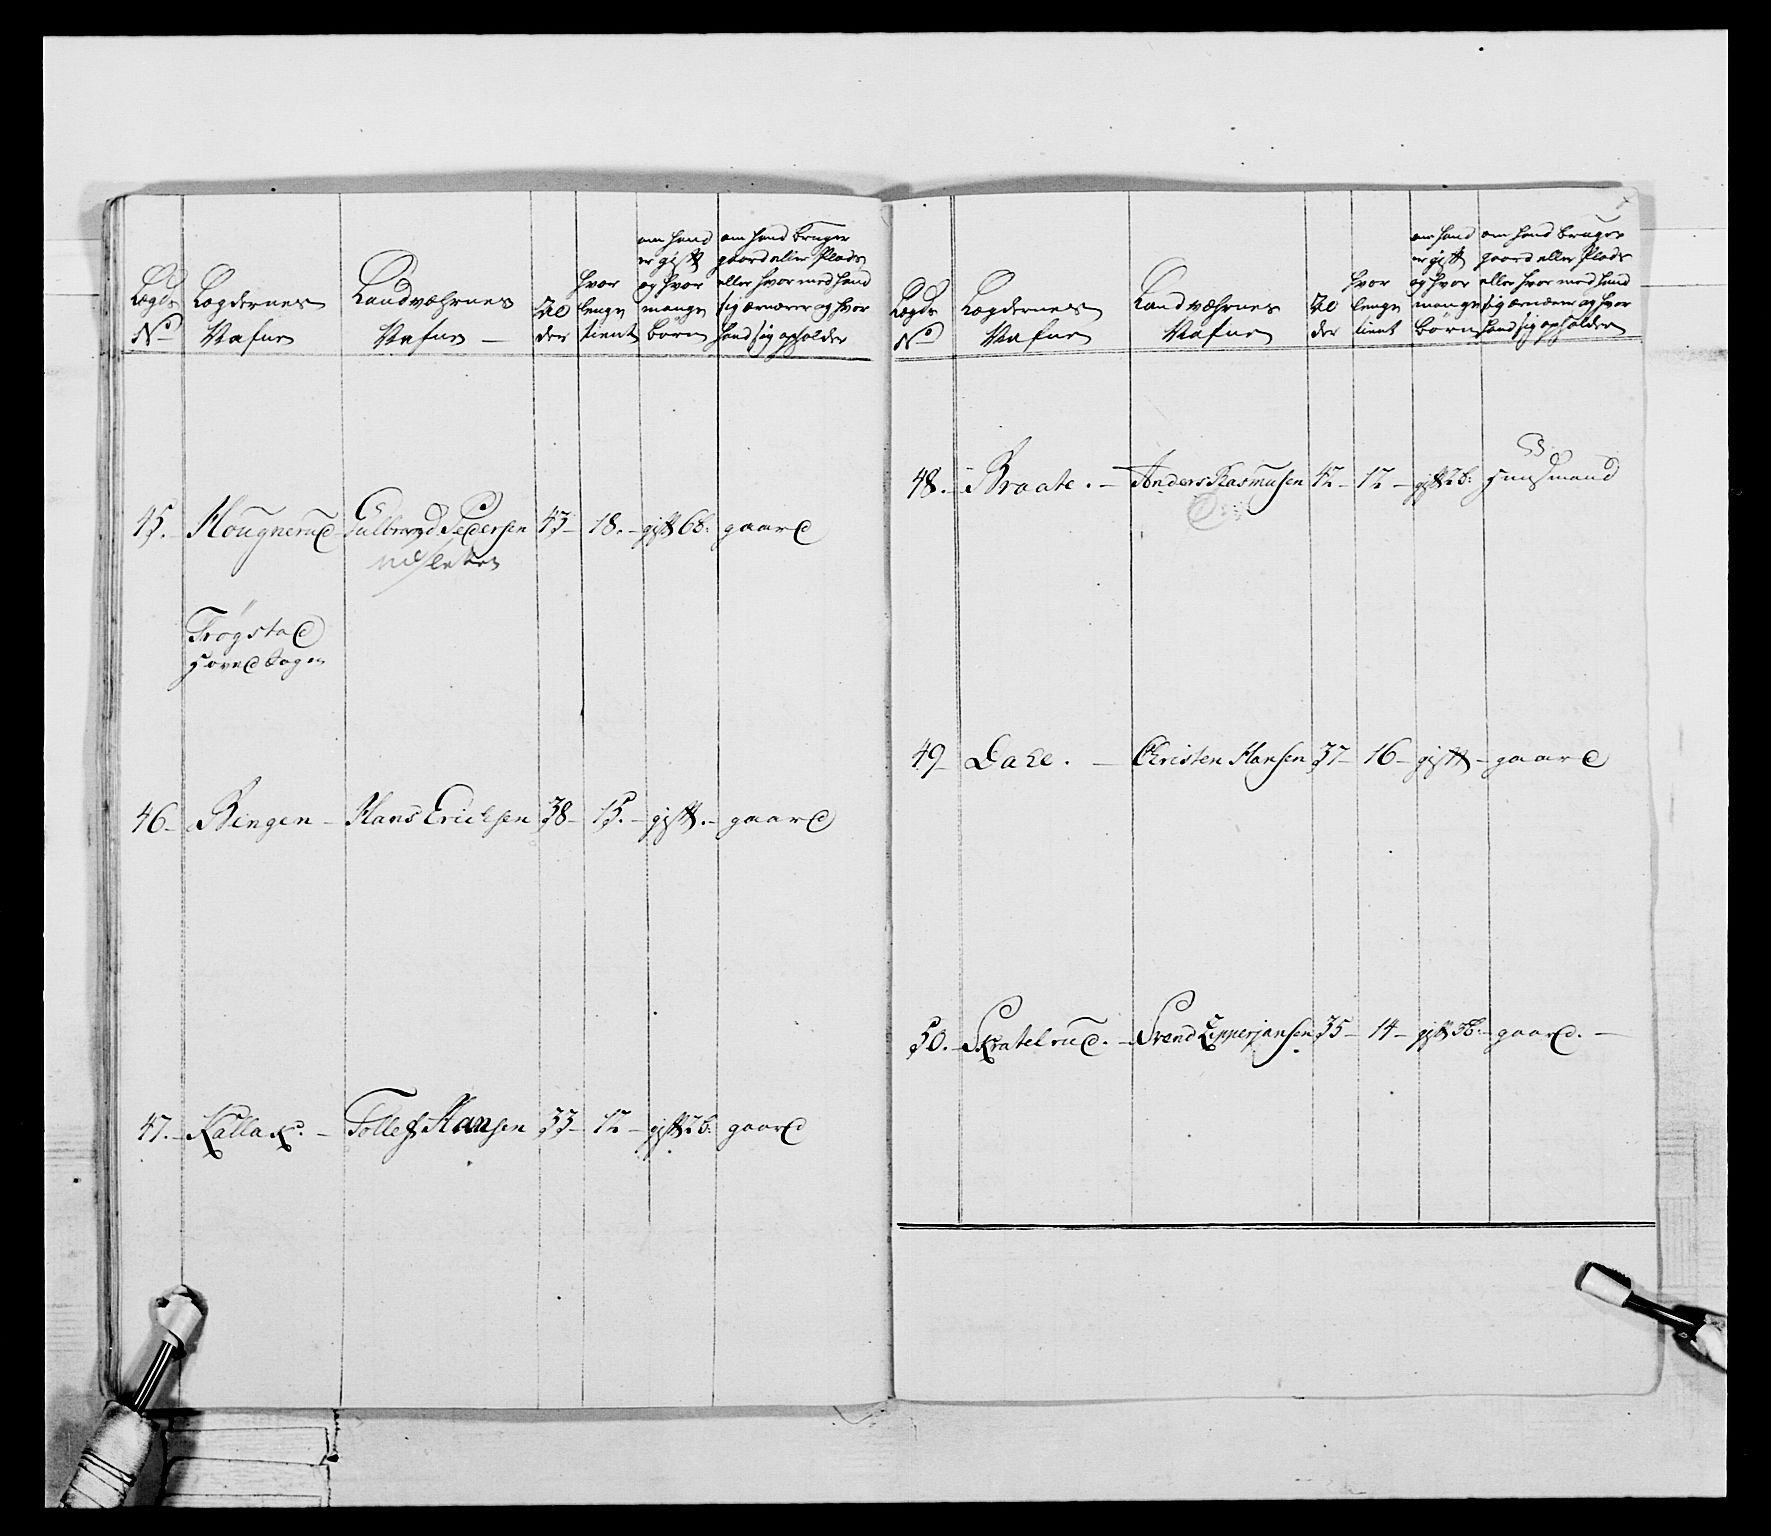 Lægde No | Lægdernes Nafne | Landværnes Nafne | Al der | hvor lenge tient | om hand er gift og hvor mange Børn | om hand bruger gaard eller Plads eller hvor med hand sig ernærer og hvor hand sig opholder
45. Hougnerud Gulbrand Pedersen 43 – 18. – gift 6 b: gaard
udsletten
Trøgstad
hoved Sogn
46 – Bingen – Hans Erichsen 38 – 15. – gift. – gaard
47. – Kallax. – Tollef Hansen 33 – 12 – gift 2 b: gaard
Lægde No | Lægdernes Nafne | Landværnes Nafne | Al der | hvor lenge tient | om hand er gift og hvor mange Børn | om hand bruger gaard eller Plads eller hvor med hand sig ernærer og hvor hand sig opholder
48. – Braate. – Anders Rasmusen 42 – 12 – gift 2 b: huusmand
49 – Dahl. – Christen Hansen 37 – 16 – gift – gaard
50. – Skratelrud. – Svend Epperjansen 35 – 14 – gift 3 b: – gaard. –